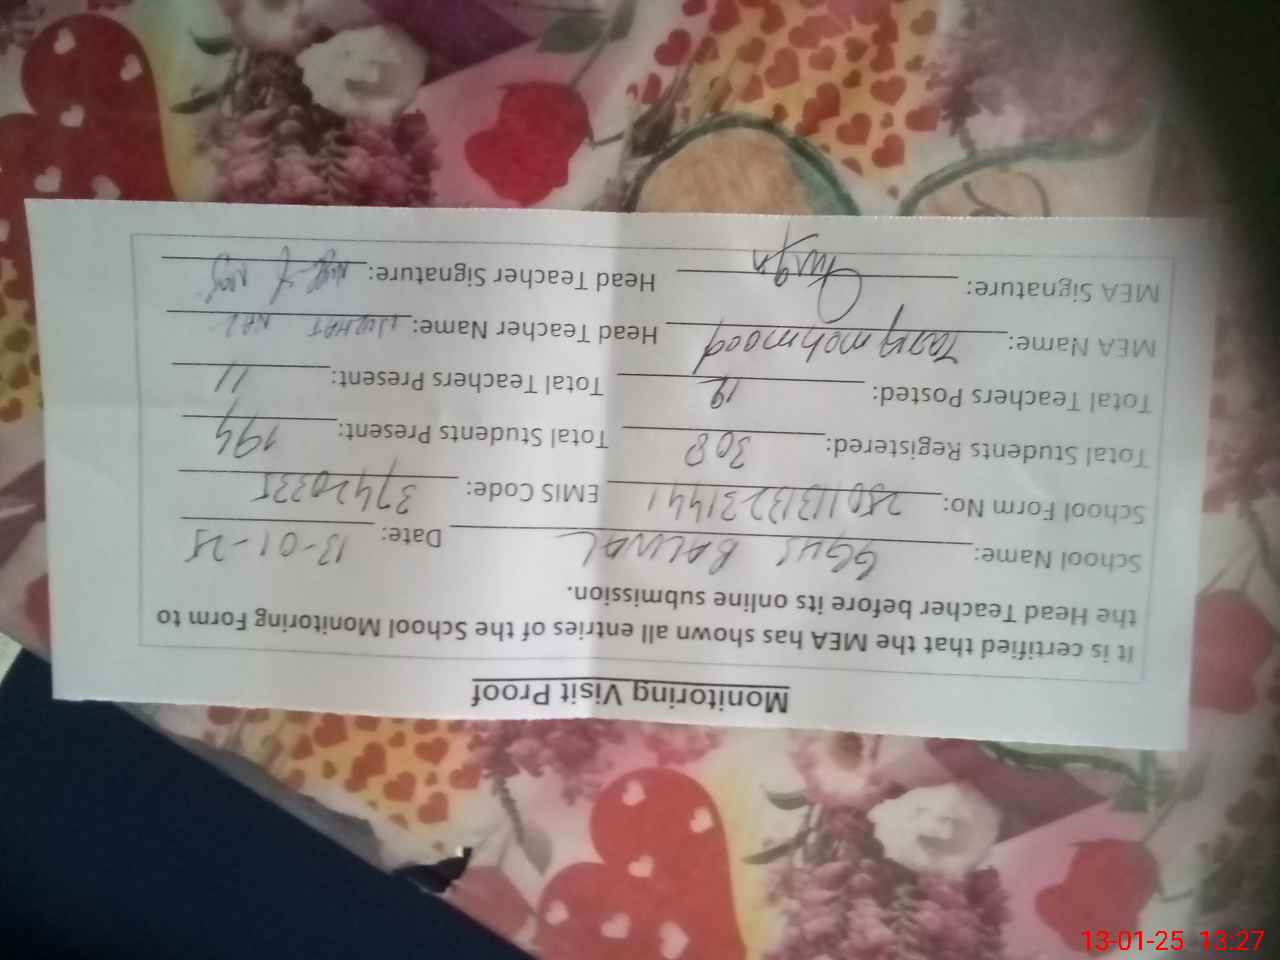 Monitoring Visit Proof
It is certified that the MEA has shown all entries of the School Monitoring Form to
the Head Teacher before its online submission.
School Name: GGHS BALWAL Date: 13-01-25
School Form No: EMIS Code: 37420335
Total Students Registered: 308 Total Students Present: 194
Total Teachers Posted: 12 Total Teachers Present: 11
MEA Name: Tariq mehmood Head Teacher Name: NUZHAT
MEA Signature: Head Teacher Signature:
13-01-25 13:27